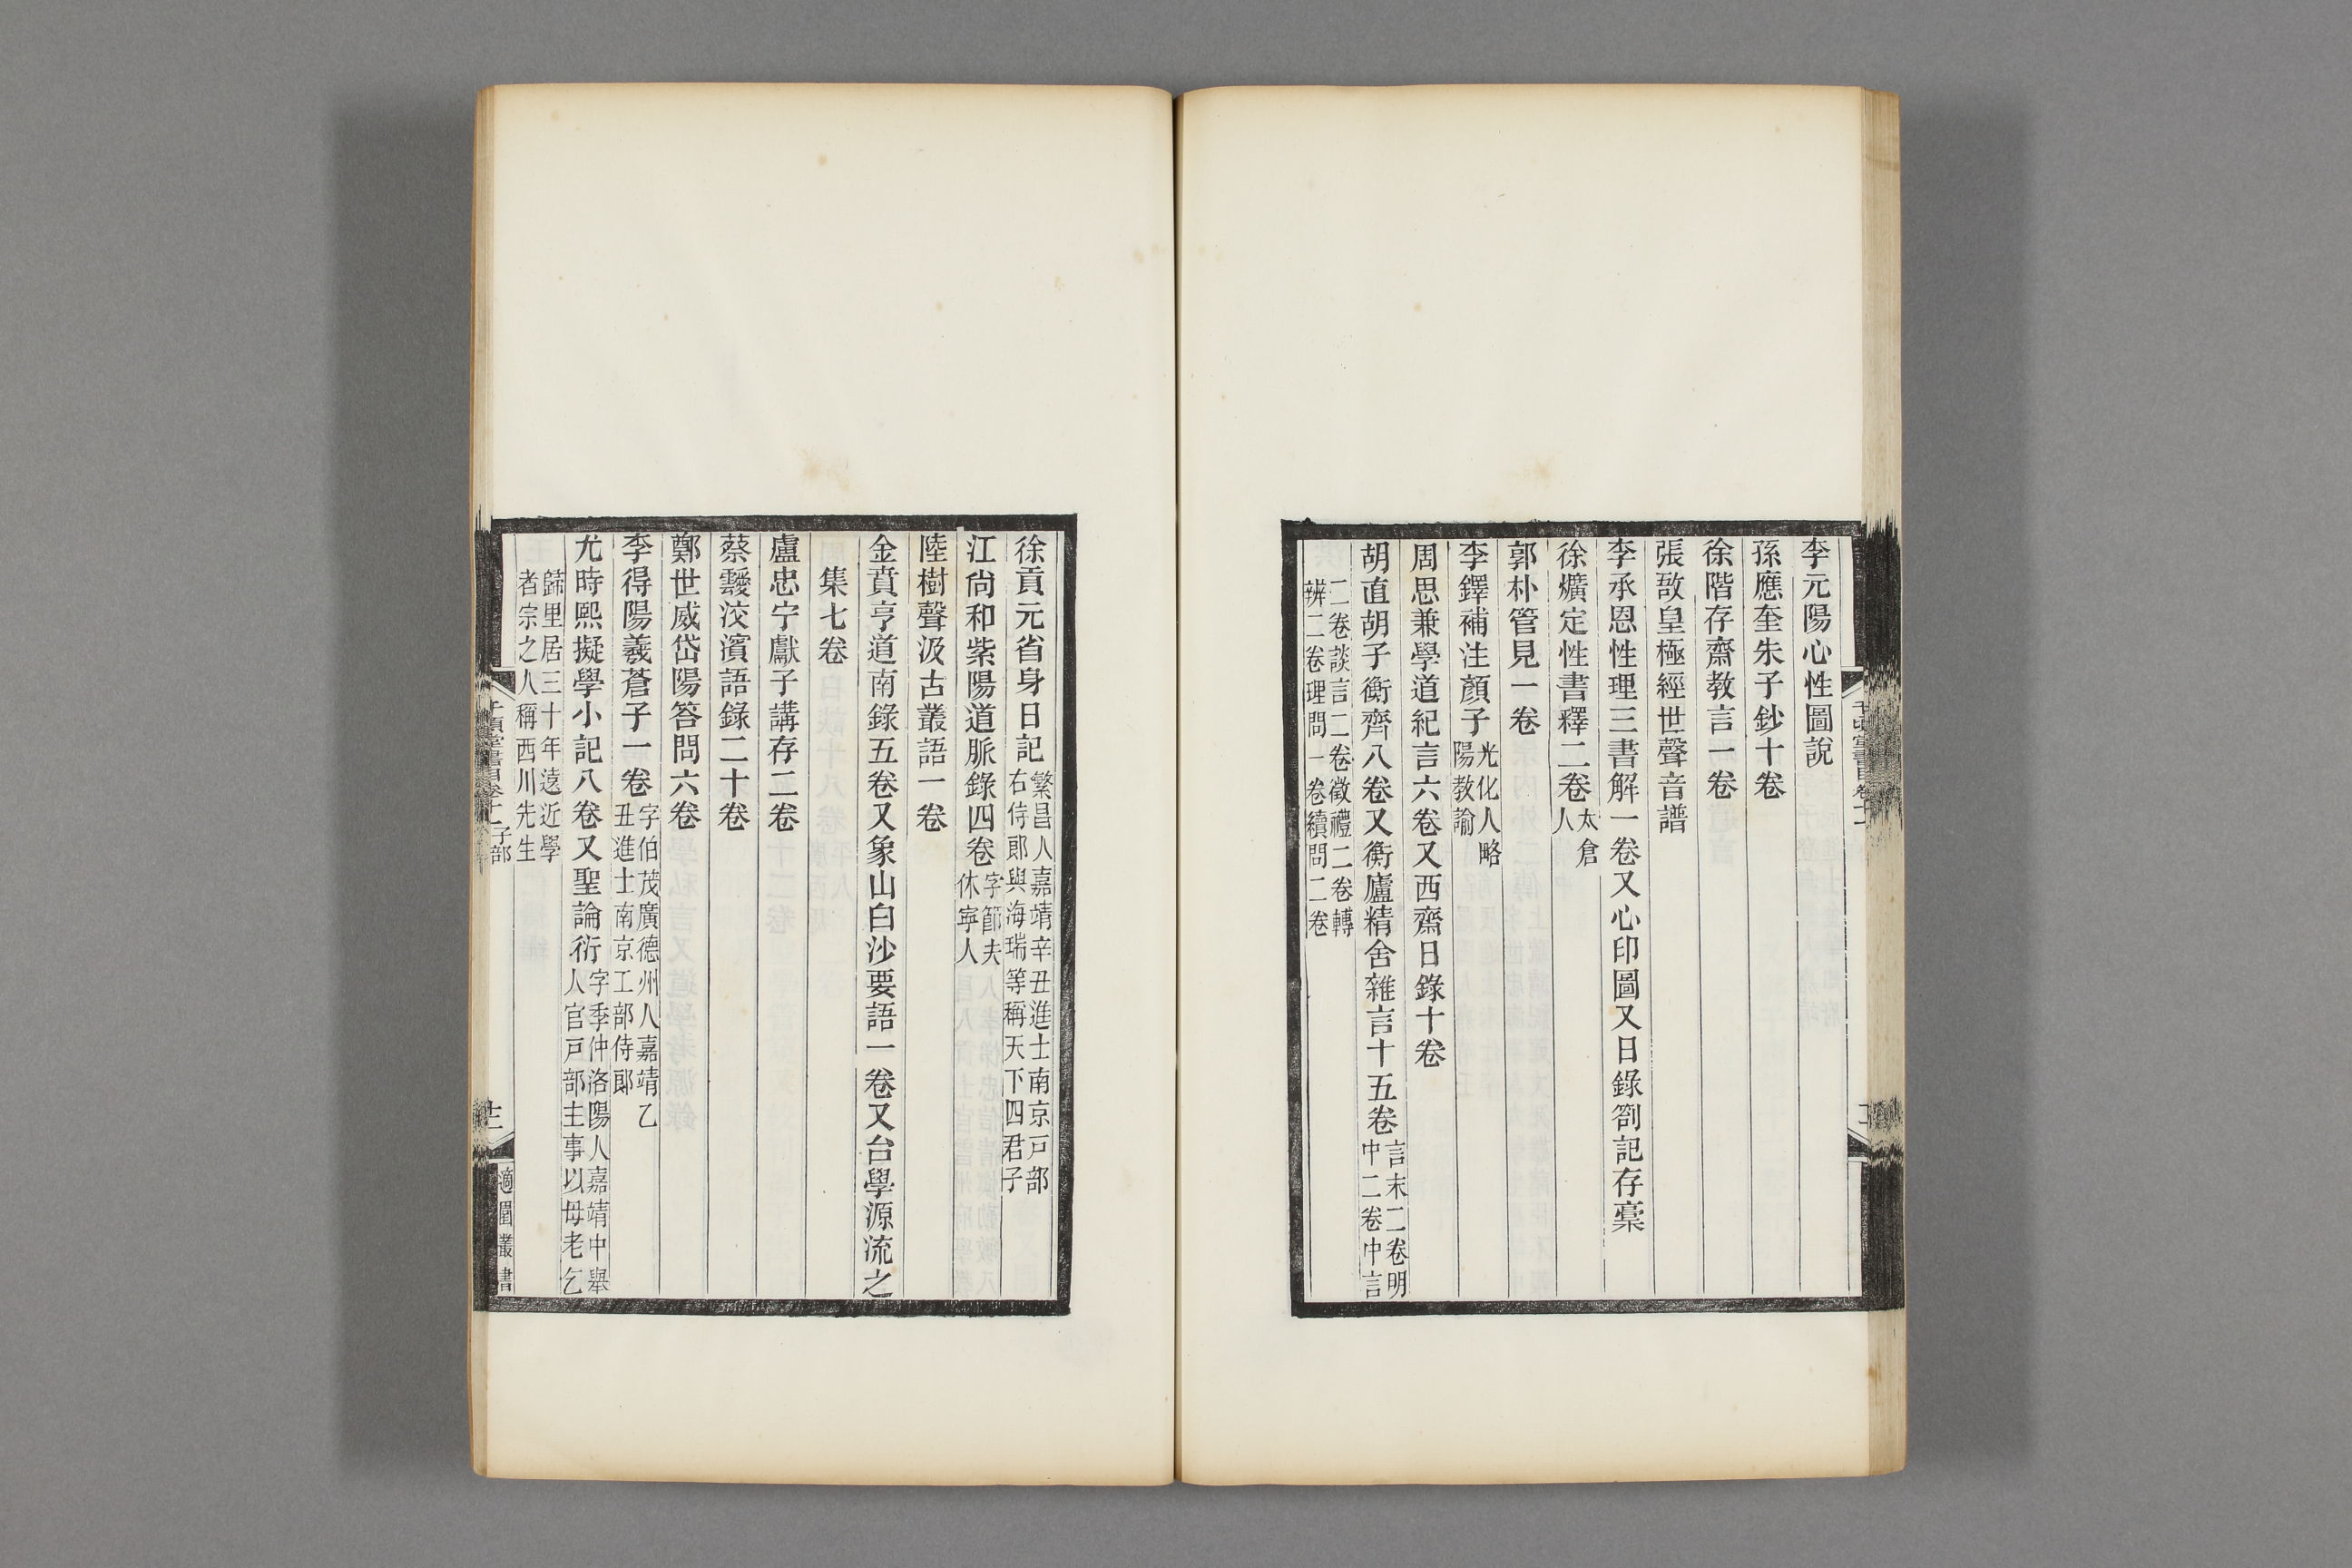 李元陽心性圖說
孫應奎朱子鈔十卷
徐階存齋教言一卷
張敔皇極經世聲音譜
李承恩性理三書解一卷又心印圖又日錄劄記存稾
徐爌定性書釋二卷太倉人
郭朴管見一卷
李鐸補注顏子光化人略陽教諭
周思兼學道紀言六卷又西齋日錄十卷
胡直胡子衡齊八卷又衡廬精舍雜言十五卷言末二卷明中二卷中言
二卷談言二卷徵禮二卷轉
辨二卷理問一卷續問二卷
徐貢元省身日記繁昌人嘉靖辛丑進士南京戸部右侍郞與海瑞等稱天下四君子
江尙和紫陽道脈錄四卷字節夫休寧人
陸樹聲汲古叢語一卷
金賁亨道南錄五卷又象山白沙要語一卷又台學源流之
集七卷
盧忠宁獻子講存二卷
蔡靉洨濱語錄二十卷
鄭世威岱陽答問六卷
李得陽羲蒼子一卷字伯茂廣德州人嘉靖乙丑進士南京工部侍郞
尤時熙擬學小記八卷又聖諭衍字季仲洛陽人嘉靖中舉人官戸部主事以母老乞
歸里居三十年遠近學
者宗之人稱西川先生
千頃堂書目卷十一 子部
十二
適園叢書